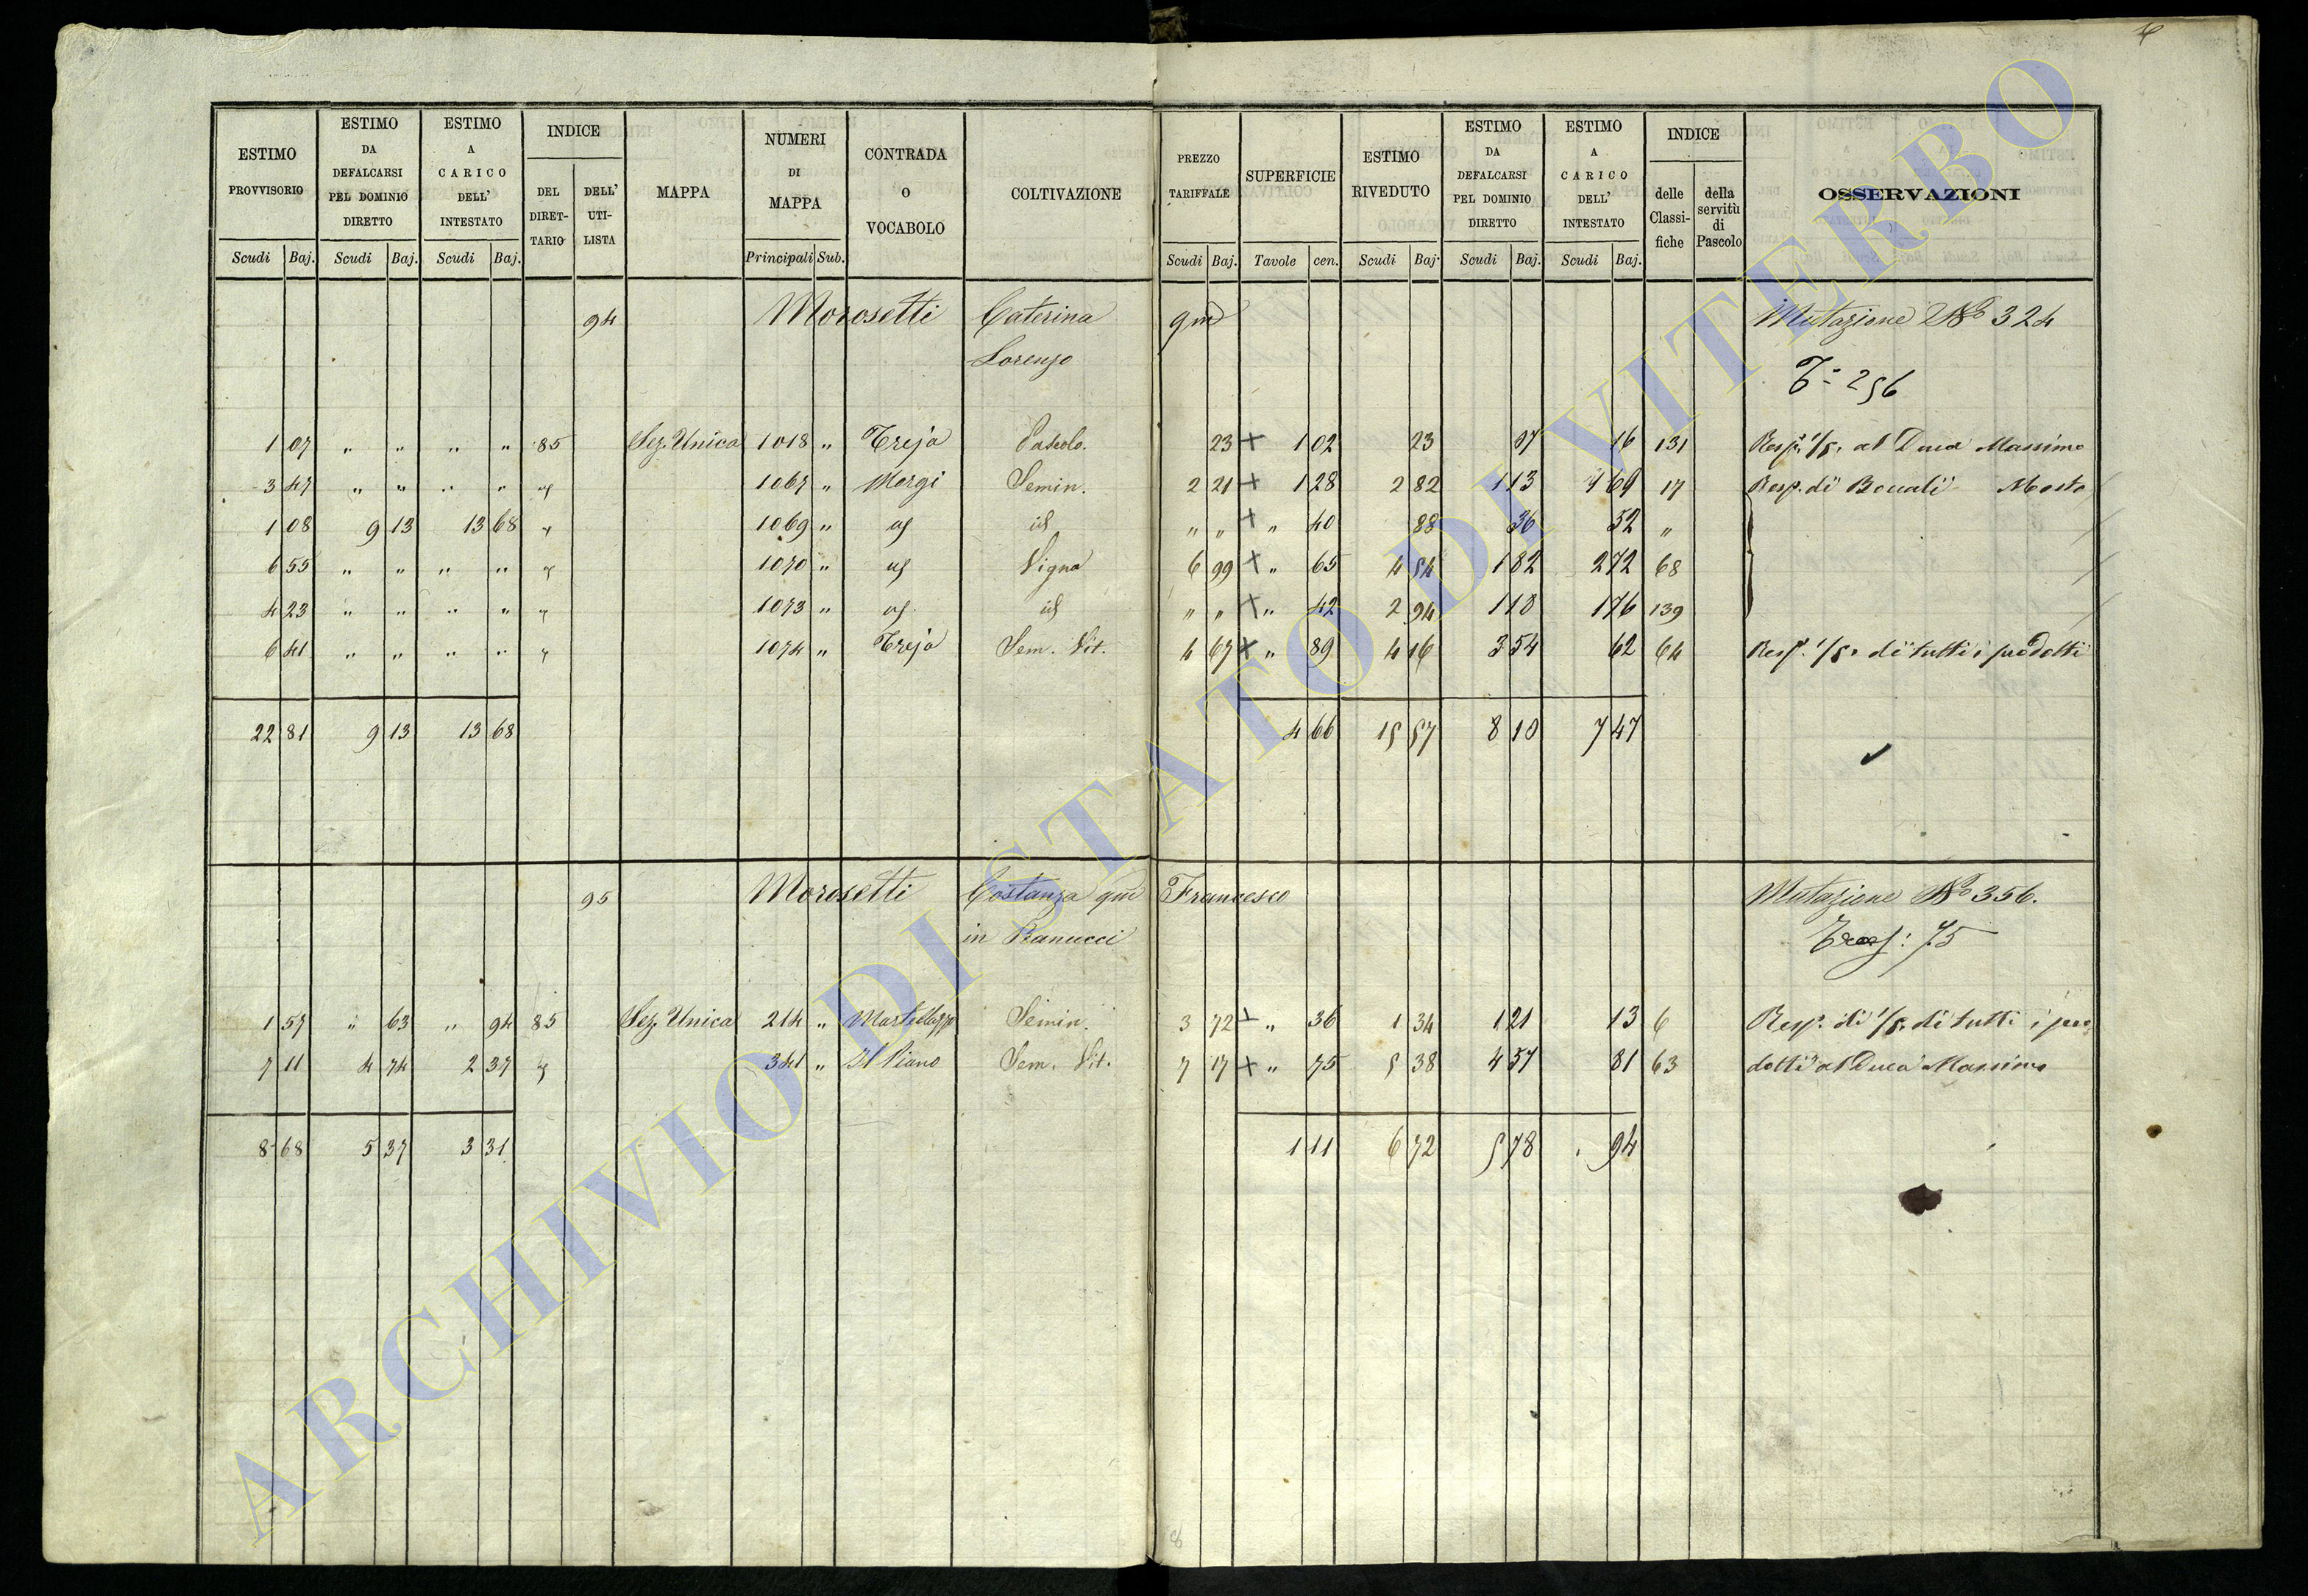 ESTIMO PROVVISORIO | ESTIMO DA DEFALCARSI PEL DOMINIO DIRETTO | ESTIMO A CARICO DELL' INTESTATO | INDICE | MAPPA | NUMERI DI MAPPA | CONTRADA O VOCABOLO | COLTIVAZIONE | PREZZO TARIFFALE | SUPERFICIE | ESTIMO RIVEDUTO | ESTIMO DA DEFALCARSI PEL DOMINIO DIRETTO | ESTIMO A CARICO DELL' INTESTATO | INDICE | OSSERVAZIONI
DEL DIRET-TARIO | DELL' UTI-LISTA | delle Classi-fiche | della servitù di Pascolo
Scudi | Baj. | Scudi | Baj. | Scudi | Baj. | Principali | Sub. | Scudi | Baj. | Tavole | cen. | Scudi | Baj. | Scudi | Baj. | Scudi | Baj.
94 Morosetti Caterina qm Mutazione No 324
Lorenzo
T= 256
1 07 " " " " 85 Sez. Unica 1018 " Treja Pascolo. 23 + 1 02 23 07 16 131 Resp. 1/5. al Duca Massimo
3 47 " " " " 1067 " Morgi Semin. 2 21 + 1 28 2 82 1 13 1 69 17 Resp. di Bocali Mosto
1 08 9 13 13 68 1069 " id " " + " 40 88 36 52 "
6 55 " " " " 1070 " Vigna 6 99 + " 65 4 54 1 82 2 72 68
4 23 " " " " 1073 " id " " + " 42 2 94 1 18 1 76 139
6 41 " " " " 1074 " Treja Sem. Vit. 4 67 + " 89 4 16 3 54 62 64 Resp. 1/5. di tutti i prodotti
22 81 9 13 13 68 4 66 15 57 8 10 7 47
95 Morosetti Costanza qm Francesco Mutazione No 356.
in Ranucci Trasf: 75
1 57 " 63 " 94 85 Sez. Unica 214 " Semin. 3 72 + " 36 1 34 1 21 13 6 Resp. di 1/5. di tutti i pro
7 11 4 74 2 37 341 " Il Piano Sem. Vit. 7 17 + " 75 5 38 4 57 81 63 dotti al Duca Massimo
8 68 5 37 3 31 1 11 6 72 5 78 . 94
ARCHIVIO DI STATO DI VITERBO